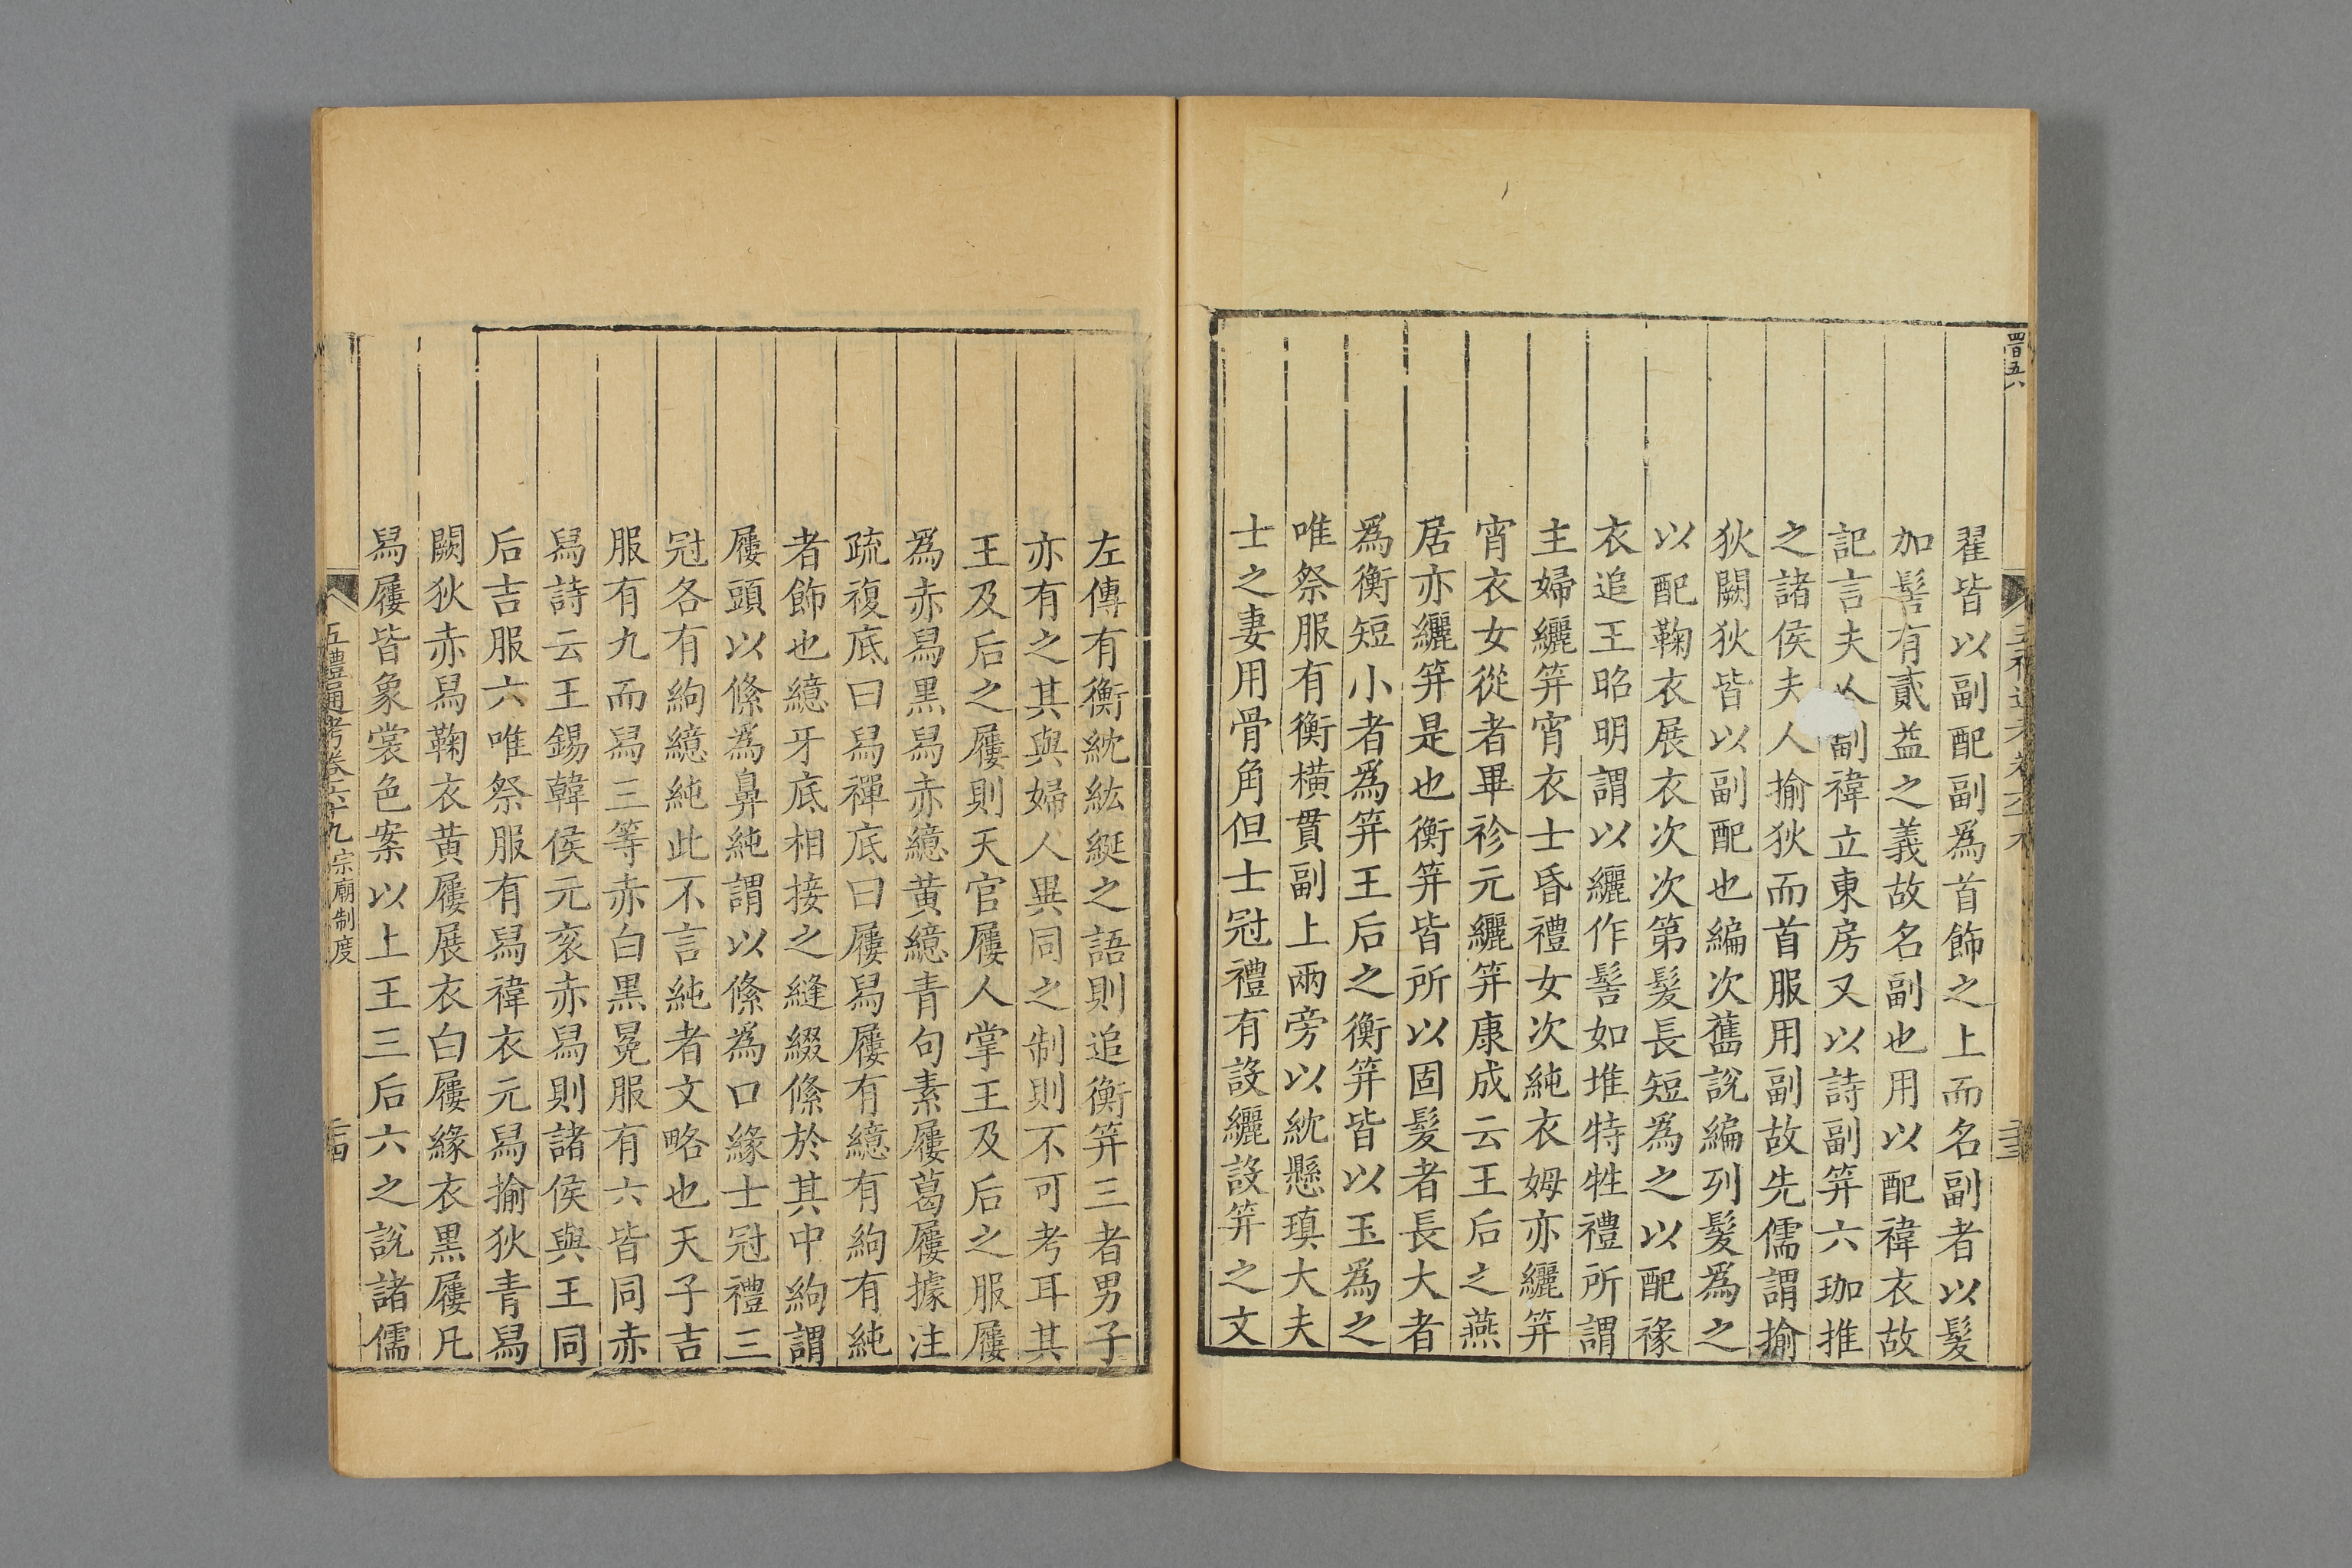 翟皆以副配副爲首飾之上而名副者以髮
加髻有貳益之義故名副也用以配褘衣故
記言夫人副褘立東房又以詩副笄六珈推
之諸侯夫人揄狄而首服用副故先儒謂揄
狄闕狄皆以副配也編次舊說編列髮爲之
以配鞠衣展衣次次第髮長短爲之以配褖
衣追王昭明謂以纚作髻如堆特牲禮所謂
主婦纚笄宵衣士昏禮女次純衣姆亦纚笄
宵衣女從者畢袗元纚笄康成云王后之燕
居亦纚笄是也衡笄皆所以固髮者長大者
爲衡短小者爲笄王后之衡笄皆以玉爲之
唯祭服有衡橫貫副上兩旁以紞懸瑱大夫
士之妻用骨角但士冠禮有設纚設笄之文
左傳有衡紞紘綖之語則追衡笄三者男子
亦有之其與婦人異同之制則不可考耳其
王及后之屨則天官屨人掌王及后之服屨
爲赤舄黑舄赤繶黃繶青句素屨葛屨據注
疏複底曰舄禪底曰屨舄屨有繶有絇有純
者飾也繶牙底相接之縫綴絛於其中絇謂
屨頭以絛爲鼻純謂以絛爲口緣士冠禮三
冠各有絇繶純此不言純者文略也天子吉
服有九而舄三等赤白黑冕服有六皆同赤
舄詩云王錫韓侯元衮赤舄則諸侯與王同
后吉服六唯祭服有舄褘衣元舄揄狄青舄
闕狄赤舄鞠衣黃屨展衣白屨緣衣黑屨凡
舄屨皆象裳色案以上王三后六之說諸儒
五禮通考卷六十九宗廟制度